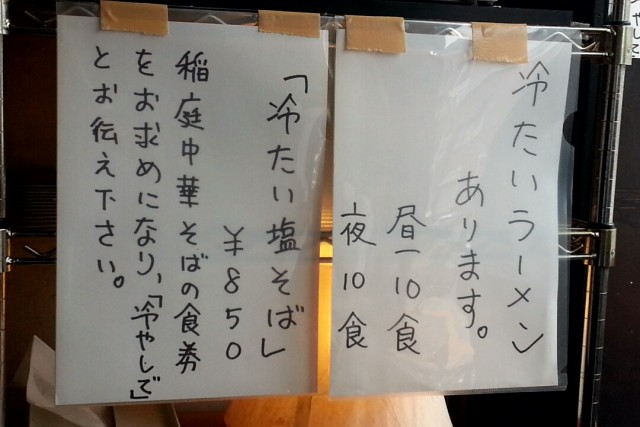 冷たいラーメン
あります。
昼一10食
夜10食
「冷たい塩そば」
￥850
稲庭中華そばの食券
をお求めになり、「冷やしで」
とお伝え下さい。